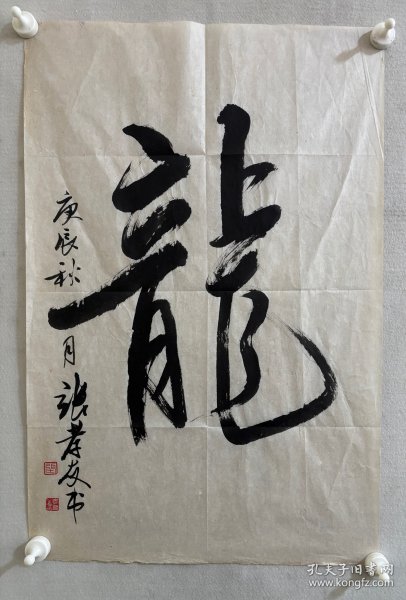 龍
庚辰秋月張孝友书
孔夫子旧书网
www.kongfz.com